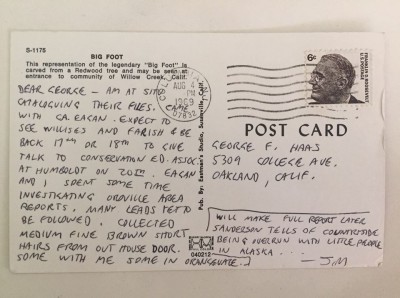 S-1175
BIG FOOT
This representation of the legendary "Big Foot" is
carved from a Redwood tree and may be seen at
entrance to community of Willow Creek, Calif.
AUG 4
PM
1969
07832
6¢
FRANKLIN D. ROOSEVELT
U.S. POSTAGE
DEAR GEORGE - AM AT SITE
CATALOGUING THEIR FILES. CAME
WITH GA. EAGAN. EXPECT TO
SEE WILLISES AND FARISH & BE
BACK 17TH OR 18TH TO GIVE
TALK TO CONSERVATION ED. ASSOC.
AT HUMBOLDT ON 20TH. EAGAN
AND I SPENT SOME TIME
INVESTIGATING OROVILLE AREA
REPORTS. MANY LEADS YET TO
BE FOLLOWED. COLLECTED
MEDIUM FINE BROWN SHORT
HAIRS FROM OUT HOUSE DOOR.
SOME WITH ME SOME IN ORANGEVALE.
Pub. By: Eastman's Studio, Susanville, Calif.
040212
POST CARD
GEORGE F. HAAS
5309 COLLEGE AVE.
OAKLAND, CALIF.
WILL MAKE FULL REPORT LATER
SANDERSON TELLS OF COUNTRYSIDE
BEING OVERRUN WITH LITTLE PEOPLE
IN ALASKA ...
- JIM